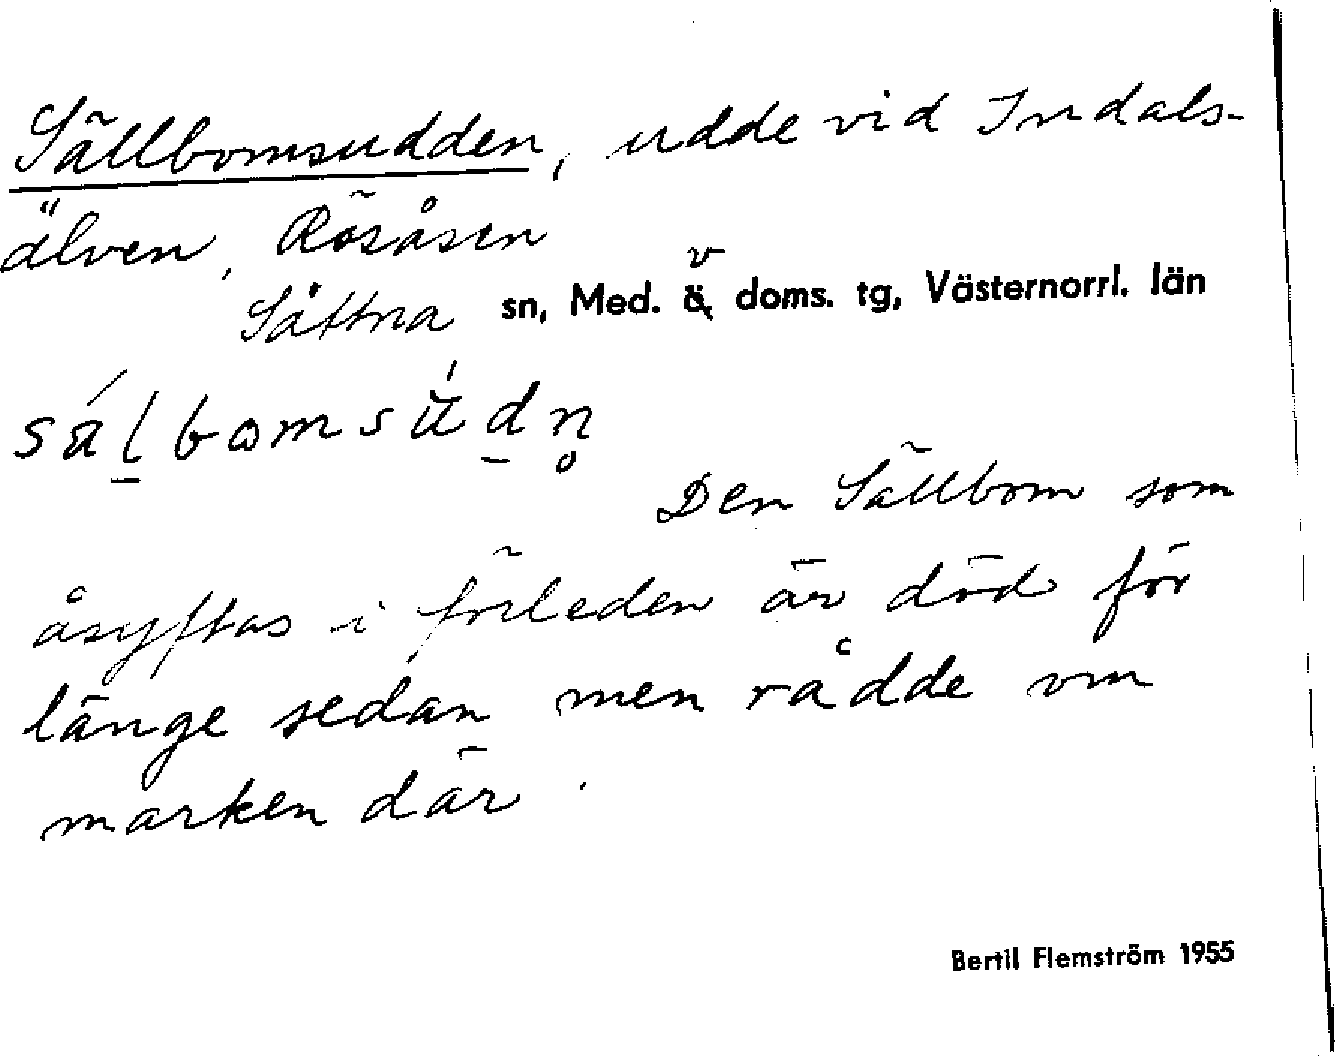 Sällbomsudden, udde vid Indals-
älven, Rösåsen
Sättna sn, Med. v ö. doms. tg, Västernorrl. län
sálbomsúdn̥
Den Sällbom som
åsyftas i förleden är död för
länge sedan men rådde om
marken där.
Bertil Flemström 1955